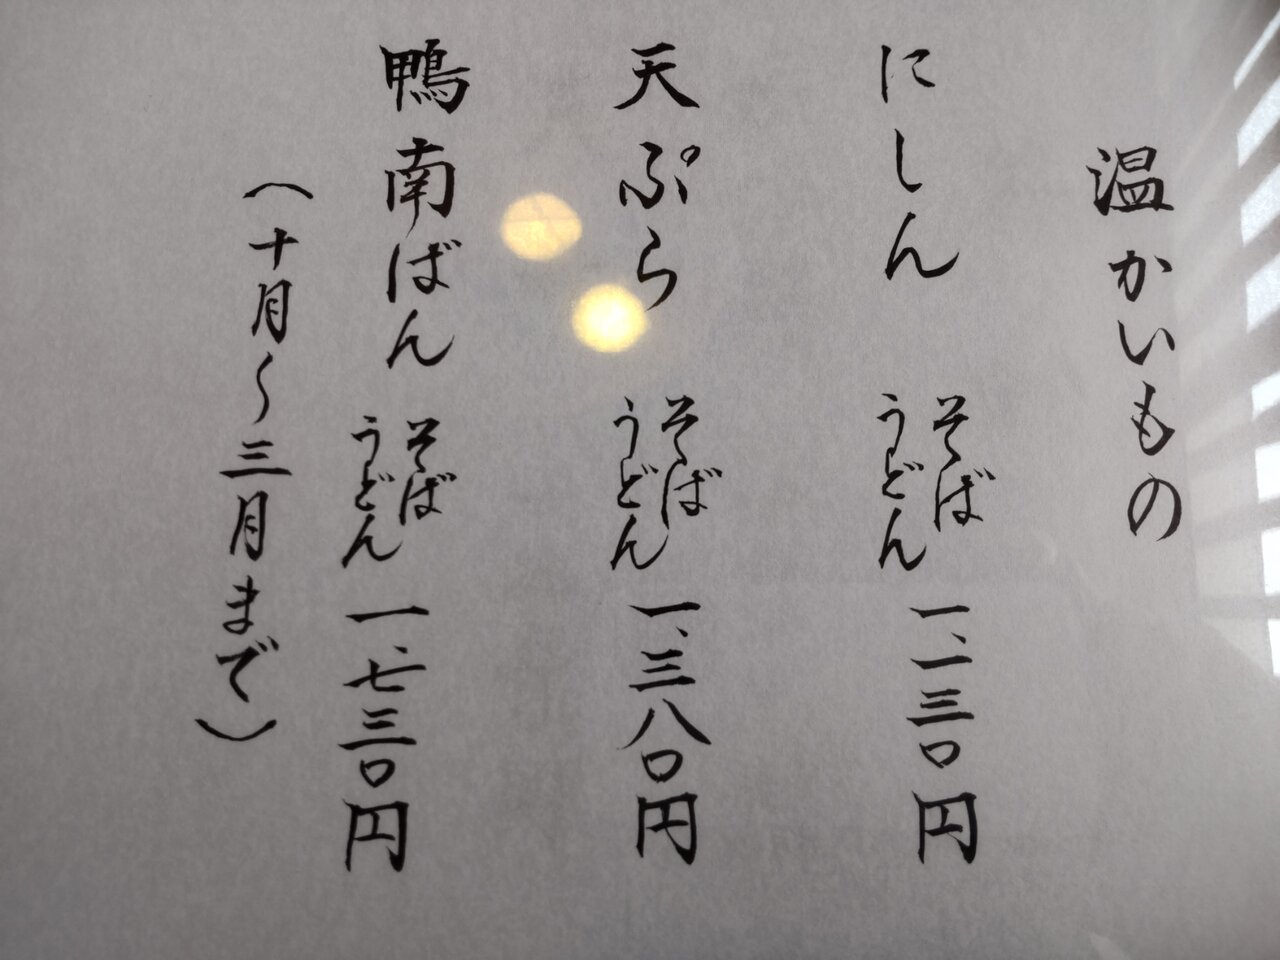 温かいもの
にしん そば うどん 一、一三〇円
天ぷら そば うどん 一、三八〇円
鴨南ばん そば うどん 一、七三〇円
（十月〜三月まで）